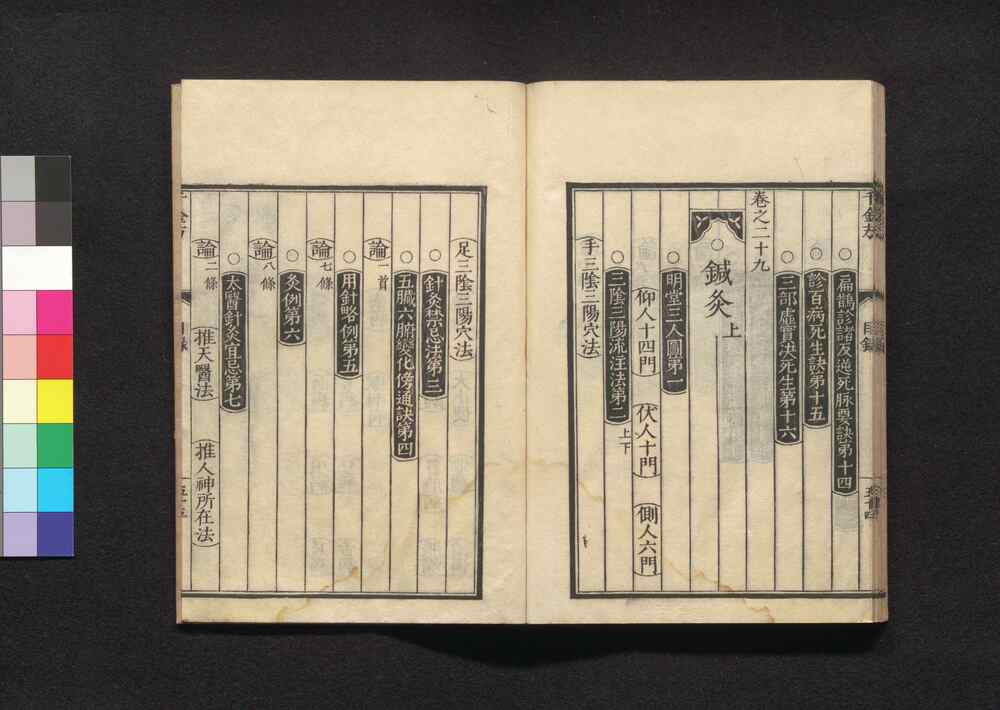 ○扁鵲診諸反逆死脉要訣第十四
○診百病死生訣第十五
○三部虛實决死生第十六
卷之二十九
○鍼灸上
○明堂三人圖第一
仰人十四門 伏人十門 側人六門
○三陰三陽流注法第二上下
手三陰三陽穴法
足三陰三陽穴法
○針灸禁忌法第三
○五臟六腑變化傍通訣第四
論一首
○用針略例第五
論七條
○灸例第六
論八條
○太醫針灸宜忌第七
論二條 推天醫法 推人神所在法
目錄